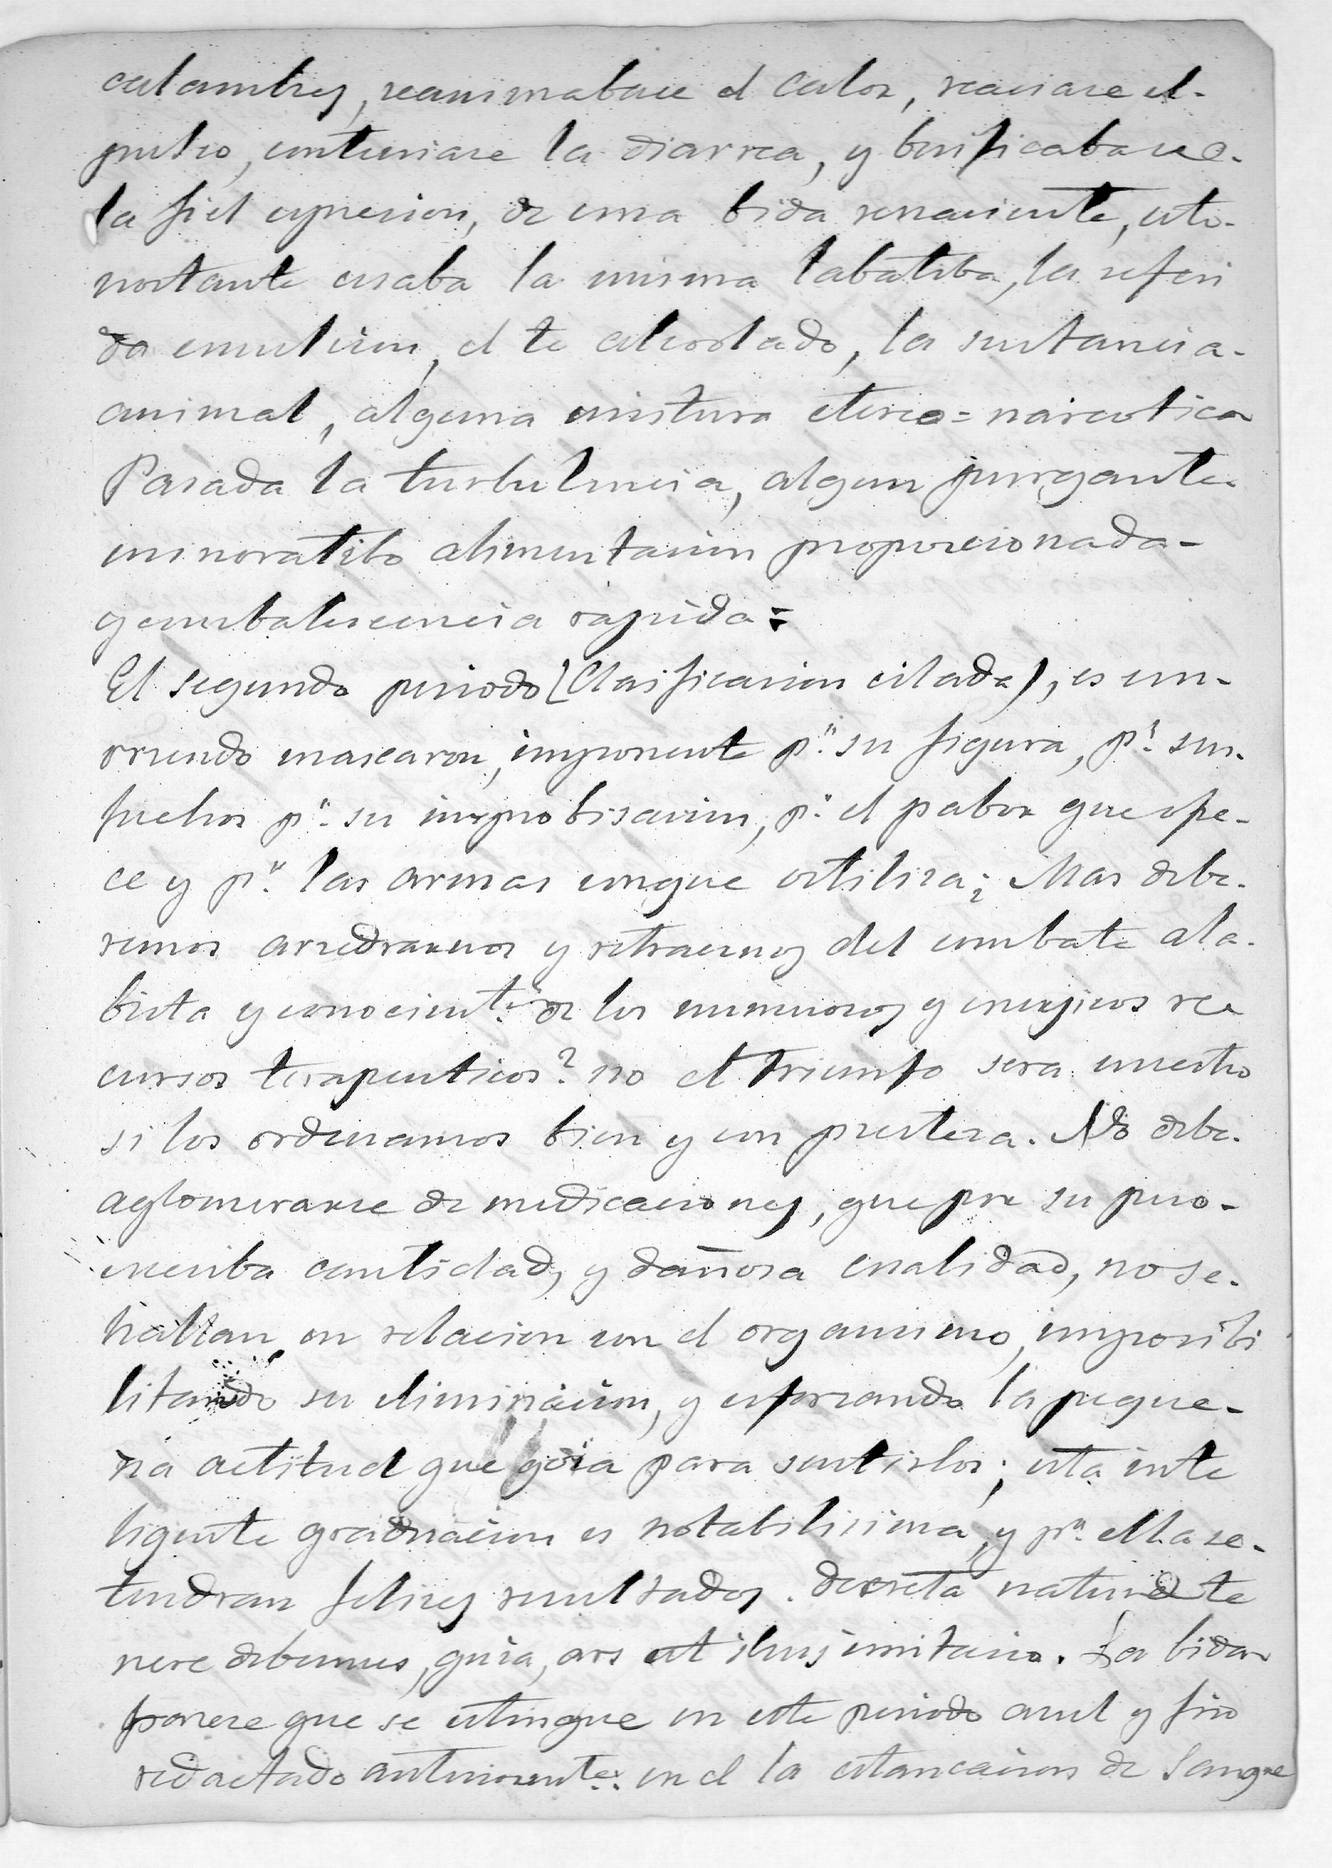 calambres, reanimabase el calor, reaciase el-
pulso, conteniase la diarrea, y berificabase-
la fiel espresion, de una bida renaciente, esto-
nostante usaba la misma labatiba, la referi
da emulsion, el te alcoolado, la sustancia-
animal, alguna mistura etereo=narcotica
Pasada la turbulencia, algun purgante-
minoratibo alimentacion proporcionada-
y combalescencia rapida=
El segundo periodo (Clasificacion citada), es un-
orrendo mascaron, imponente pr. su figura, pr. sus-
hechos pr. su improbisacion, pr. el pabor que ofre-
ce y pr. las armas conque utilisa; Mas debe-
remos arredrarnos y retraernos del combate ala-
bista y conocimto. de los numerosos y energicos re
cursos terapeuticos? no el triunfo sera nuestro
si los ordenamos bien y con presteza. No debe-
aglomerarse de medicaciones, que por su
cantidad, y dañosa cualidad, no se-
hallan en relacion con el organismo, imposibi
litando su eliminacion, y esforzando la peque-
ña actitud que goza para sentirlos; esta inte
ligente graduacion es notabilisima, y pr. ella se-
tendran felises resultados. decreta nature te
nere debemus, guia, ars est ilius imitacio. La bida
parece que se estingue en este periodo azul y frio
redactado anteriormente: en el la estancacion de sangre